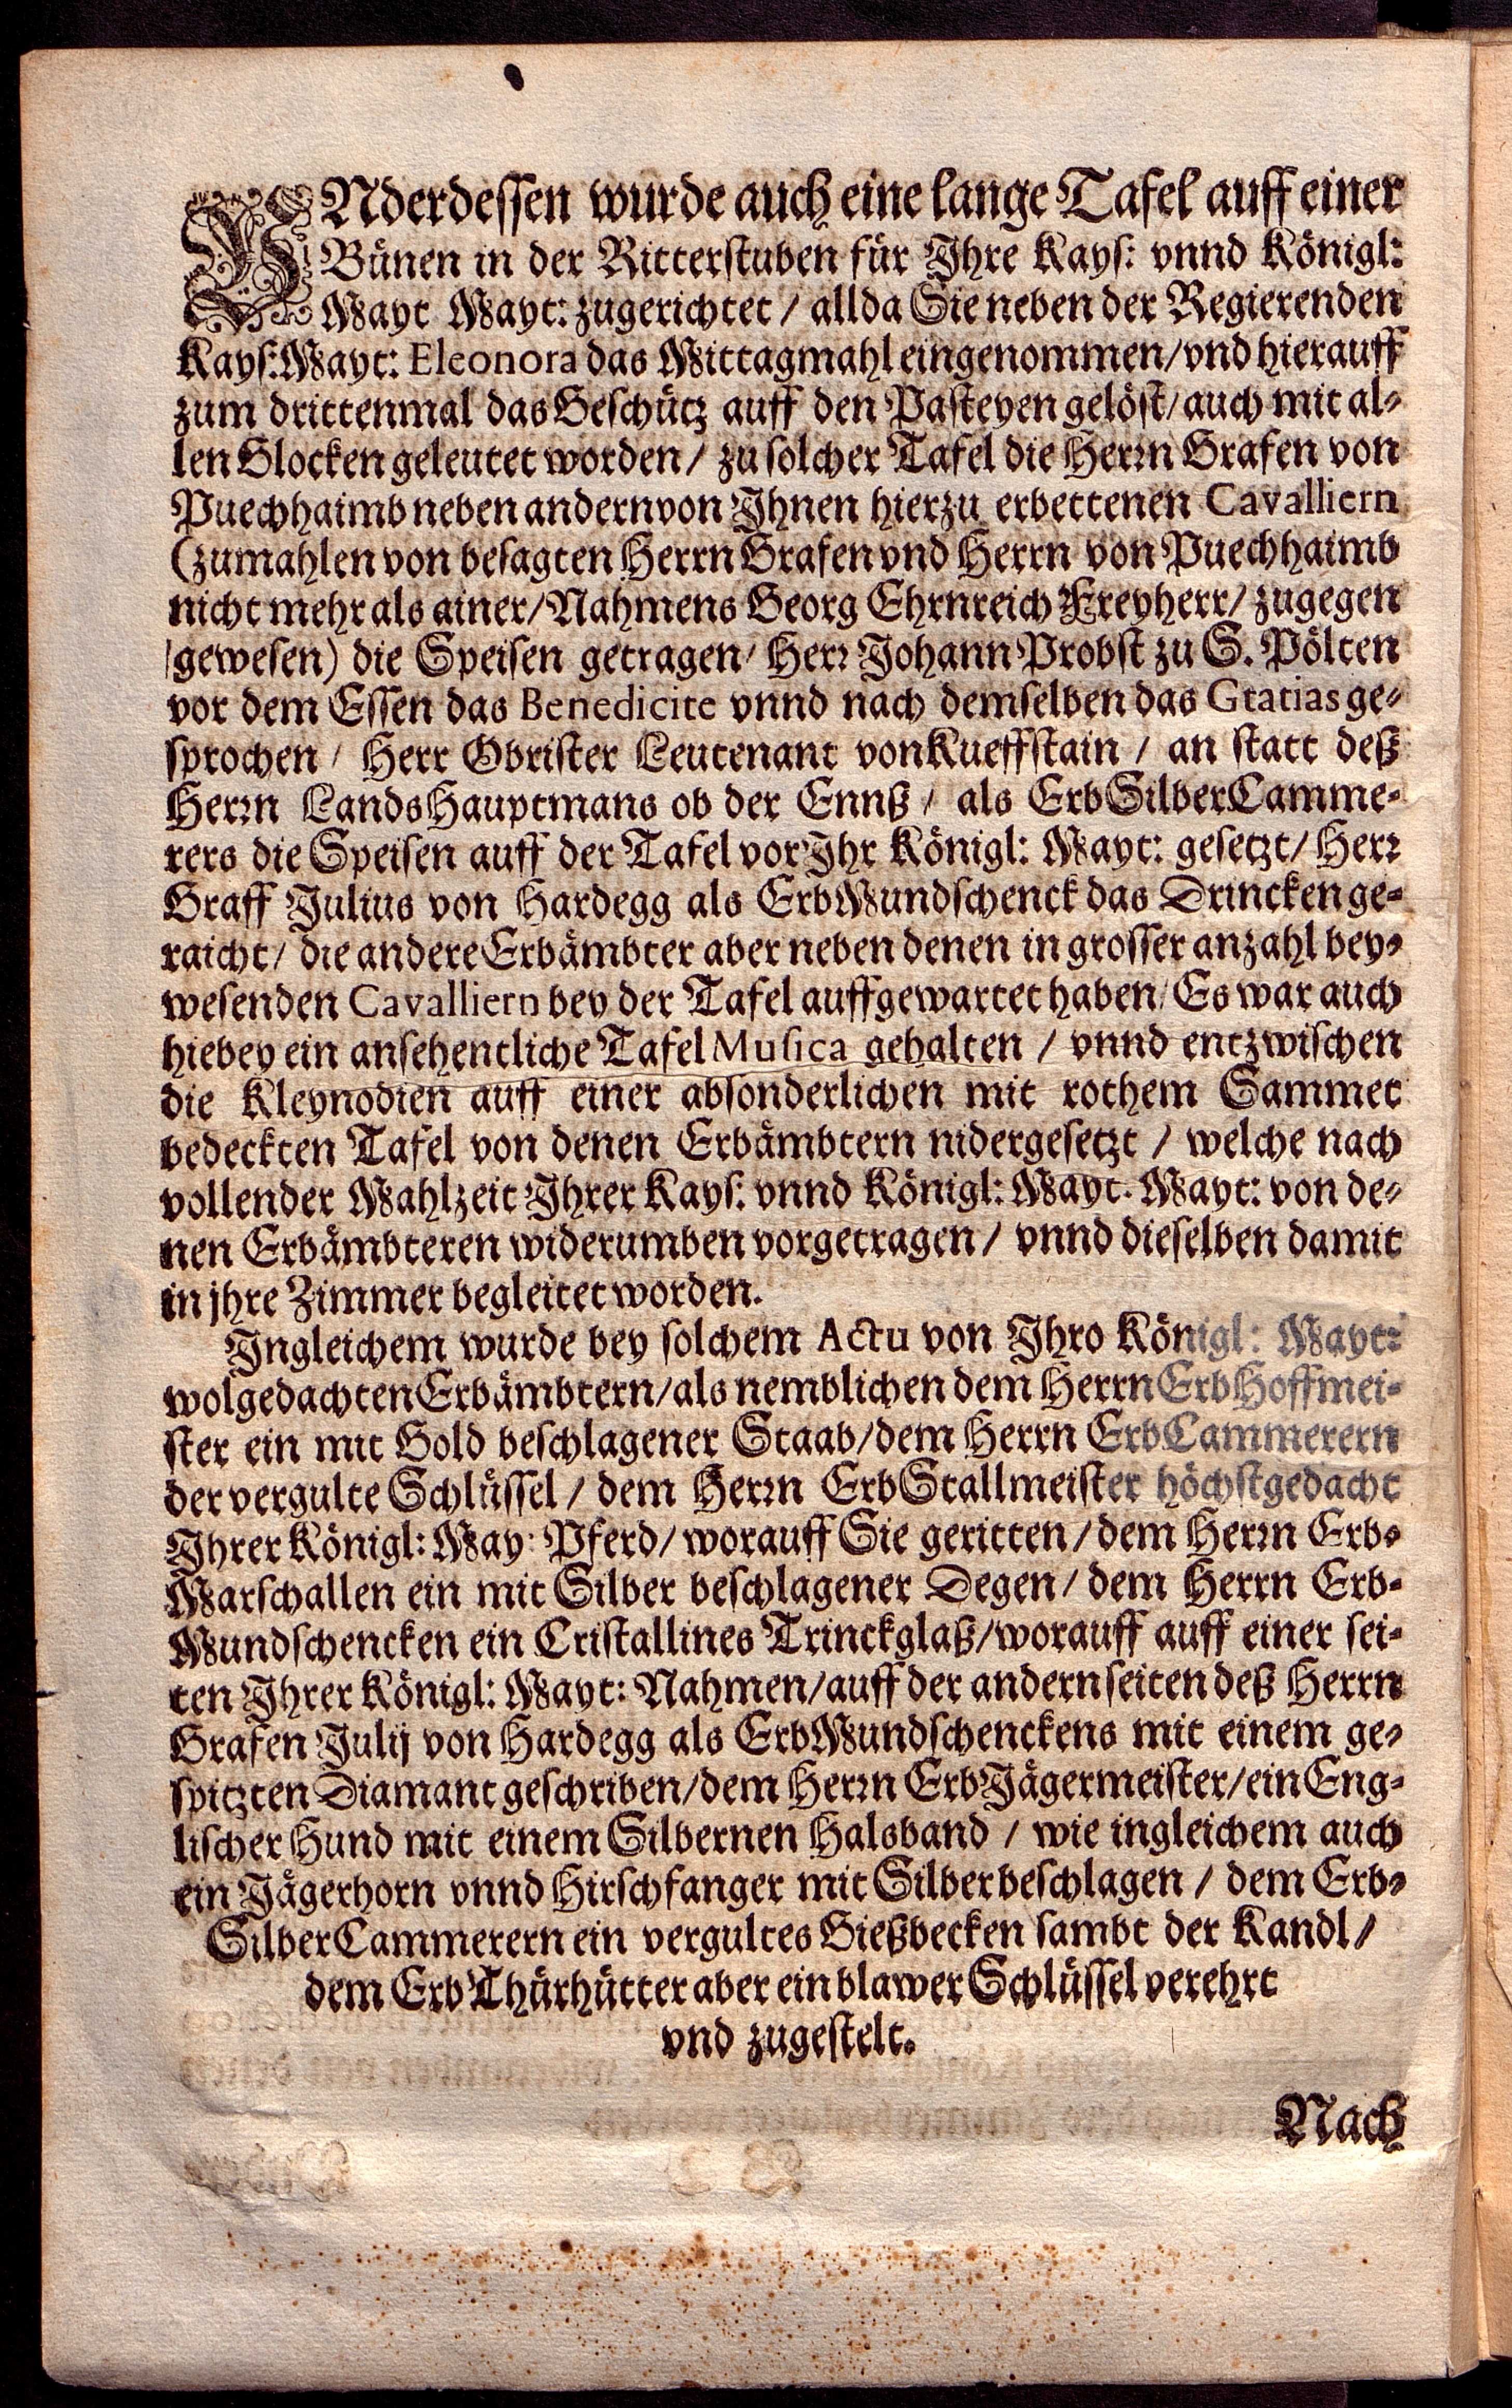 UNderdessen wurde auch eine lange Tafel auff einer
Bünen in der Ritterstuben für Jhre Kays: vnnd Königl:
Mayt Mayt: zugerichtet / allda Sie neben der Regierenden
Kays: Mayt: Eleonora das Mittagmahl eingenommen / vnd hierauff
zum drittenmal das Geschütz auff den Pasteyen gelöst / auch mit al-
len Glocken geleutet worden / zu solcher Tafel die Herrn Grafen von
Puechhaimb neben andern von Jhnen hierzu erbettenen Cavalliern
(zumahlen von besagten Herrn Grafen vnd Herrn von Puechhaimb
nicht mehr als ainer / Nahmens Georg Ehrnreich Freyherr / zugegen
gewesen) die Speisen getragen / Herr Johann Probst zu S. Pölten
vor dem Essen das Benedicite vnnd nach demselben das Gratias ge-
sprochen / Herr Obrister Leutenant von Kueffstain / an statt deß
Herrn LandsHauptmans ob der Ennß / als ErbSilberCamme-
rers die Speisen auff der Tafel vor Jhr Königl: Mayt: gesetzt / Herr
Graff Julius von Hardegg als ErbMundschenck das Drincken ge-
raicht / die andere Erbämbter aber neben denen in grosser anzahl bey-
wesenden Cavalliern bey der Tafel auffgewartet haben / Es war auch
hiebey ein ansehentliche Tafel Musica gehalten / vnnd entzwischen
die Kleynodien auff einer absonderlichen mit rothem Sammet
bedeckten Tafel von denen Erbämbtern nidergesetzt / welche nach
vollender Mahlzeit Jhrer Kays: vnnd Königl: Mayt. Mayt: von de-
nen Erbämbteren widerumben vorgetragen / vnnd dieselben damit
in jhre Zimmer begleitet worden.
Jngleichem wurde bey solchem Actu von Jhro Königl: Mayt:
wolgedachten Erbämbtern / als nemblichen dem Herrn ErbHoffmei-
ster ein mit Gold beschlagener Staab / dem Herrn ErbCammerern
der vergulte Schlüssel / dem Herrn ErbStallmeister höchstgedacht
Jhrer Königl: May: Pferd / worauff Sie geritten / dem Herrn Erb-
Marschallen ein mit Silber beschlagener Degen / dem Herrn Erb-
Mundschencken ein Cristallines Trinckglaß / worauff auff einer sei-
ten Jhrer Königl: Mayt: Nahmen / auff der andern seiten deß Herrn
Grafen Julij von Hardegg als ErbMundschenckens mit einem ge-
spitzten Diamant geschriben / dem Herrn ErbJägermeister / ein Eng-
lischer Hund mit einem Silbernen Halsband / wie ingleichem auch
ein Jägerhorn vnnd Hirschfanger mit Silber beschlagen / dem Erb-
SilberCammerern ein vergultes Gießbecken sambt der Kandl /
dem ErbThürhütter aber ein blawer Schlüssel verehrt
vnd zugestelt.
Nach